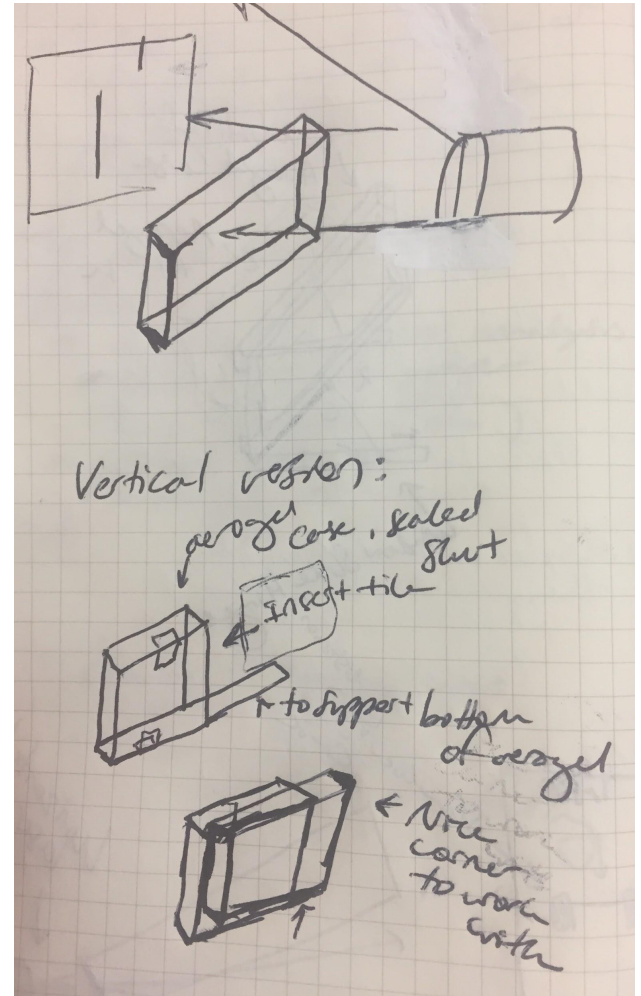 Vertical version:
aerogel case, sealed
shut
Insert tile
to support bottom
of aerogel
Nice
corner
to work
with